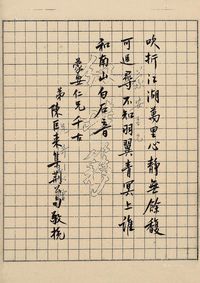 吹折江湖萬里心靜無餘馥
可追尋不知羽翼青冥上誰
和南山白石音
蒙安仁兄千古
弟陳巨來集荊公句敬挽